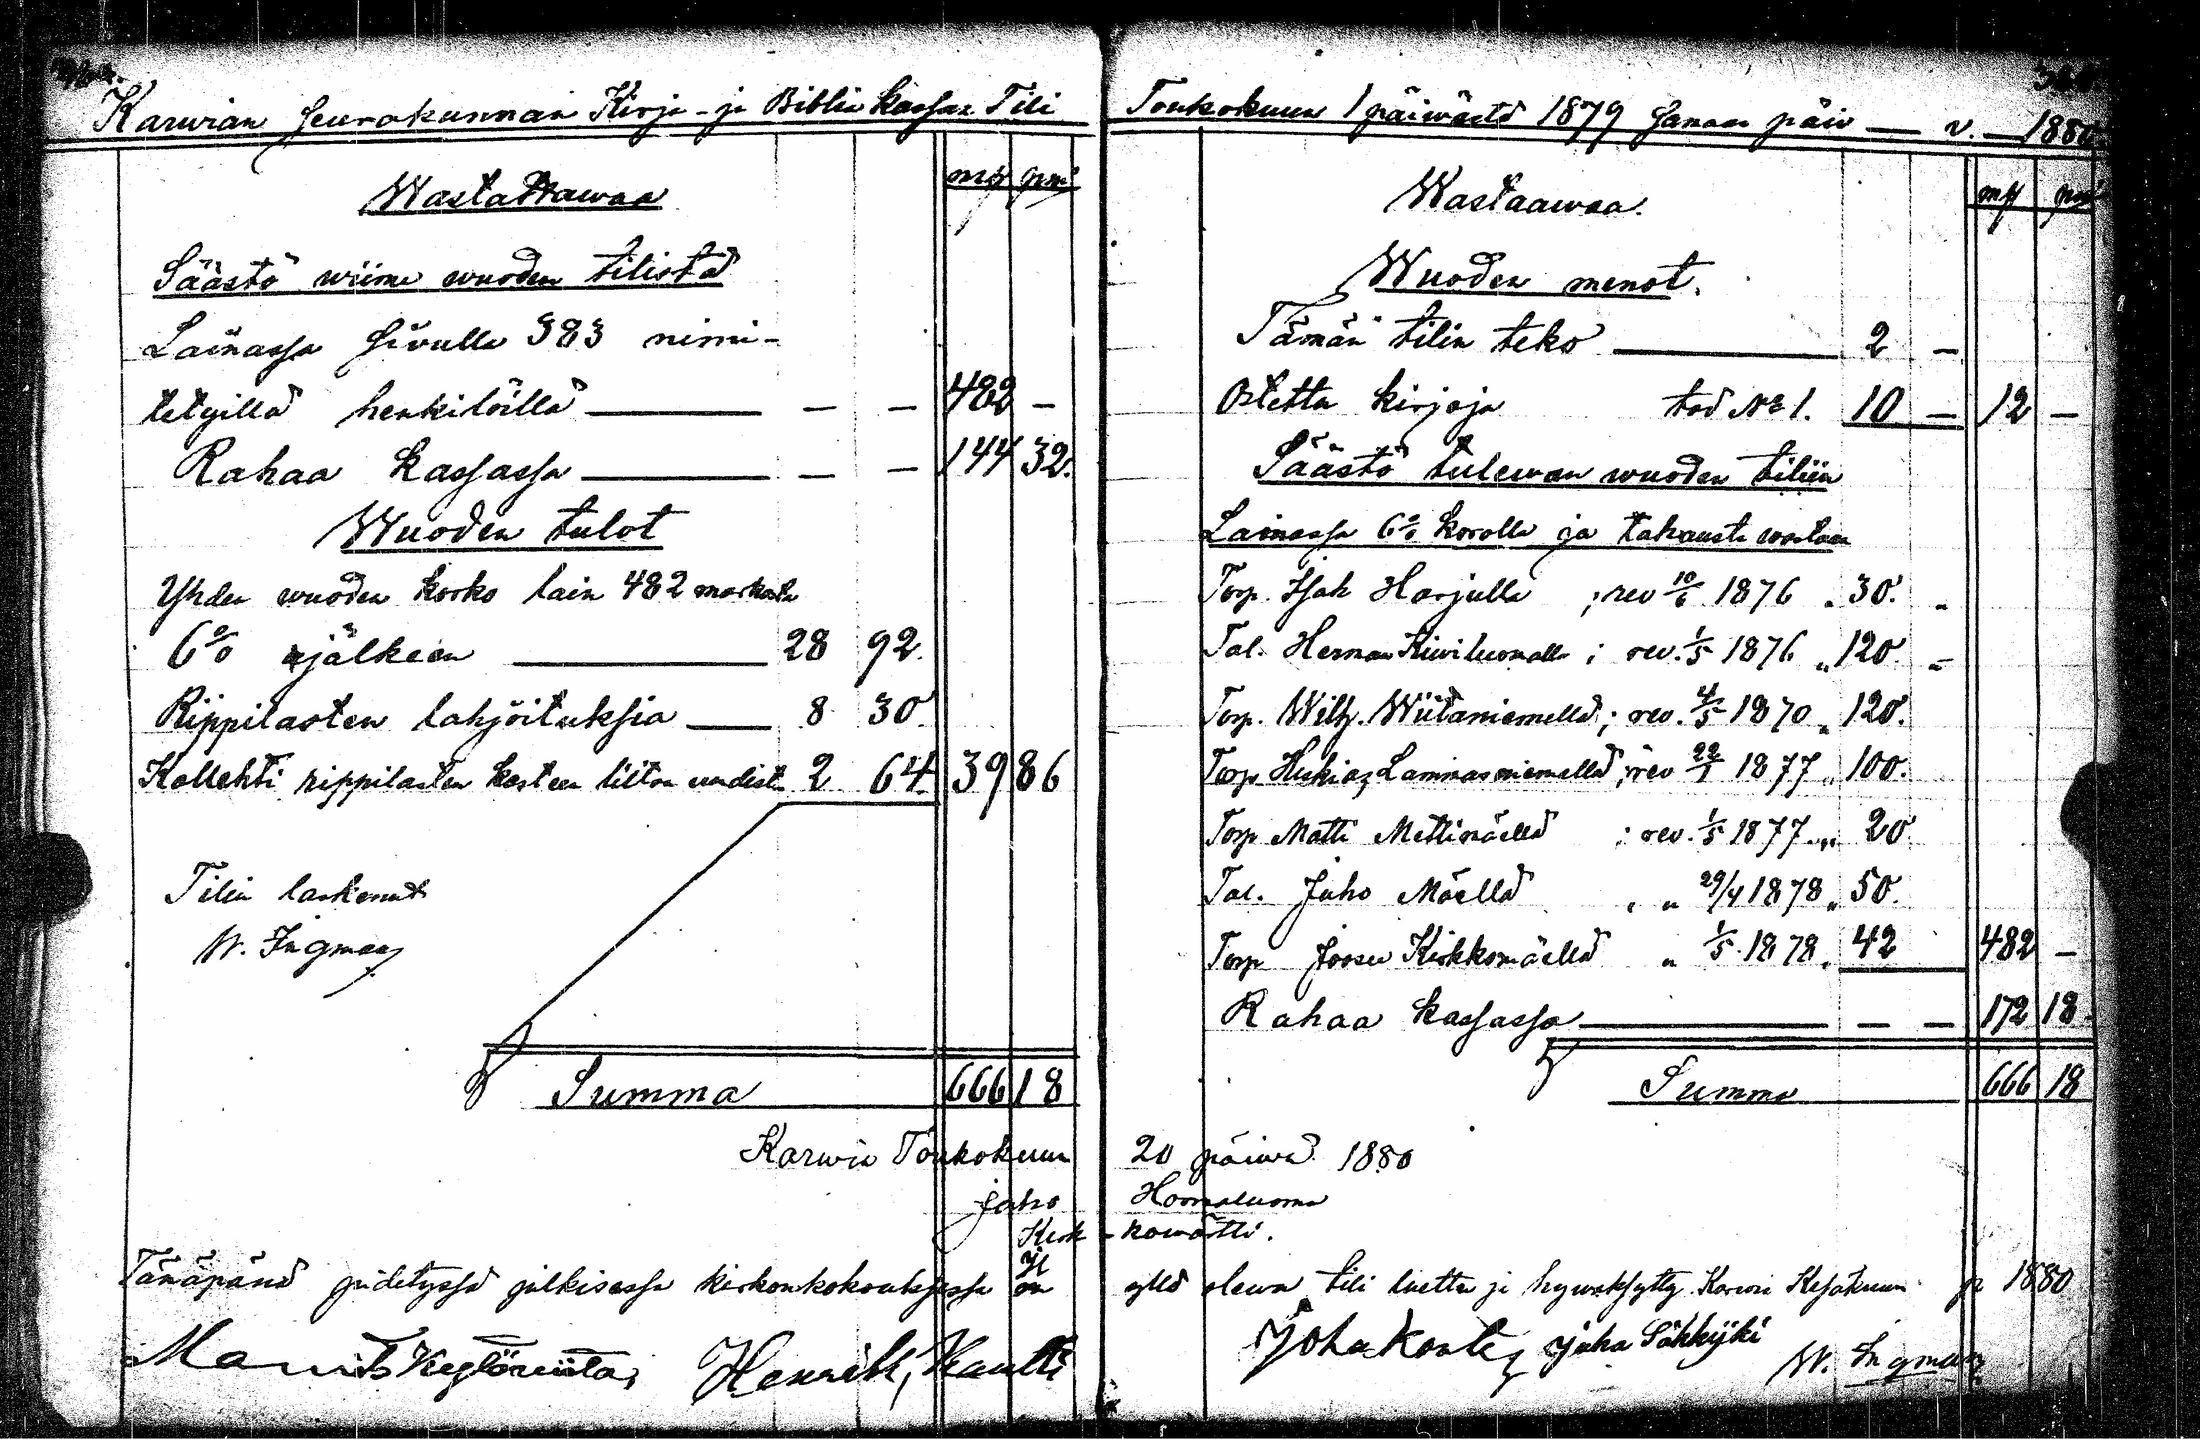 Karwian seurakunnan Kirja- ja Biblia kassan Tili
Wastattawaa
mƒ pni
Säästö wiime wuoden tilistä
Lainassa sivulla 383 nimi-
tetyillä henkilöillä — — — 482 —
Rahaa kassassa — — — 144 32.
Wuoden tulot
Yhden wuoden korko lain 482 markasta
6% jälkeen — 28 92.
Rippilasten lahjoituksia — 8 30.
Kollehti rippilasten kasteen liiton uudist. 2 64. 39 86
Tilin laskenut
W. Ingman
Summa 666 18
Toukokuun 1 päiwästä 1879 samaan päiw — v. — 1880.
Wastaawaa.
mƒ pni
Wuoden menot.
Tämän tilin teko — 2 —
Ostettu kirjoja tod № 1. 10 — 12 —
Säästö tulewan wuoden tiliin
Lainassa 6% korolla ja takausta wastaan
Torp. Isak Harjulla ; rev 10/6 1876 „ 30. „
Tal. Herman Kiviluomalla ; rev. 1/5 1876 „ 120. „
Torp. Wilh. Wiitaniemellä ; rev. 4/5 1870 „ 120.
Torp. Heskias Lamminniemellä ; rev 22/1 1877 „ 100.
Torp Matti Mettimäellä ; rev. 1/5 1877 „ 20.
Tal. Juho Mäellä „ „ 29/4 1878 „ 50.
Torp Joosu Kirkkomäellä „ 1/5 1878 „ 42 482 —
Rahaa kassassa — — — 172 18.
Summa 666 18
Karwia Toukokuun 20 päiwä 1880
Juho
Kirk-
Tänäpänä pidetyssä julkisessa kirkonkokouksessa on yllä olewa tili luettu ja hywäksytty. Karwia Kesäkuun p 1880
Henrik, Kantti Juha Sähkyjki W. Ingman